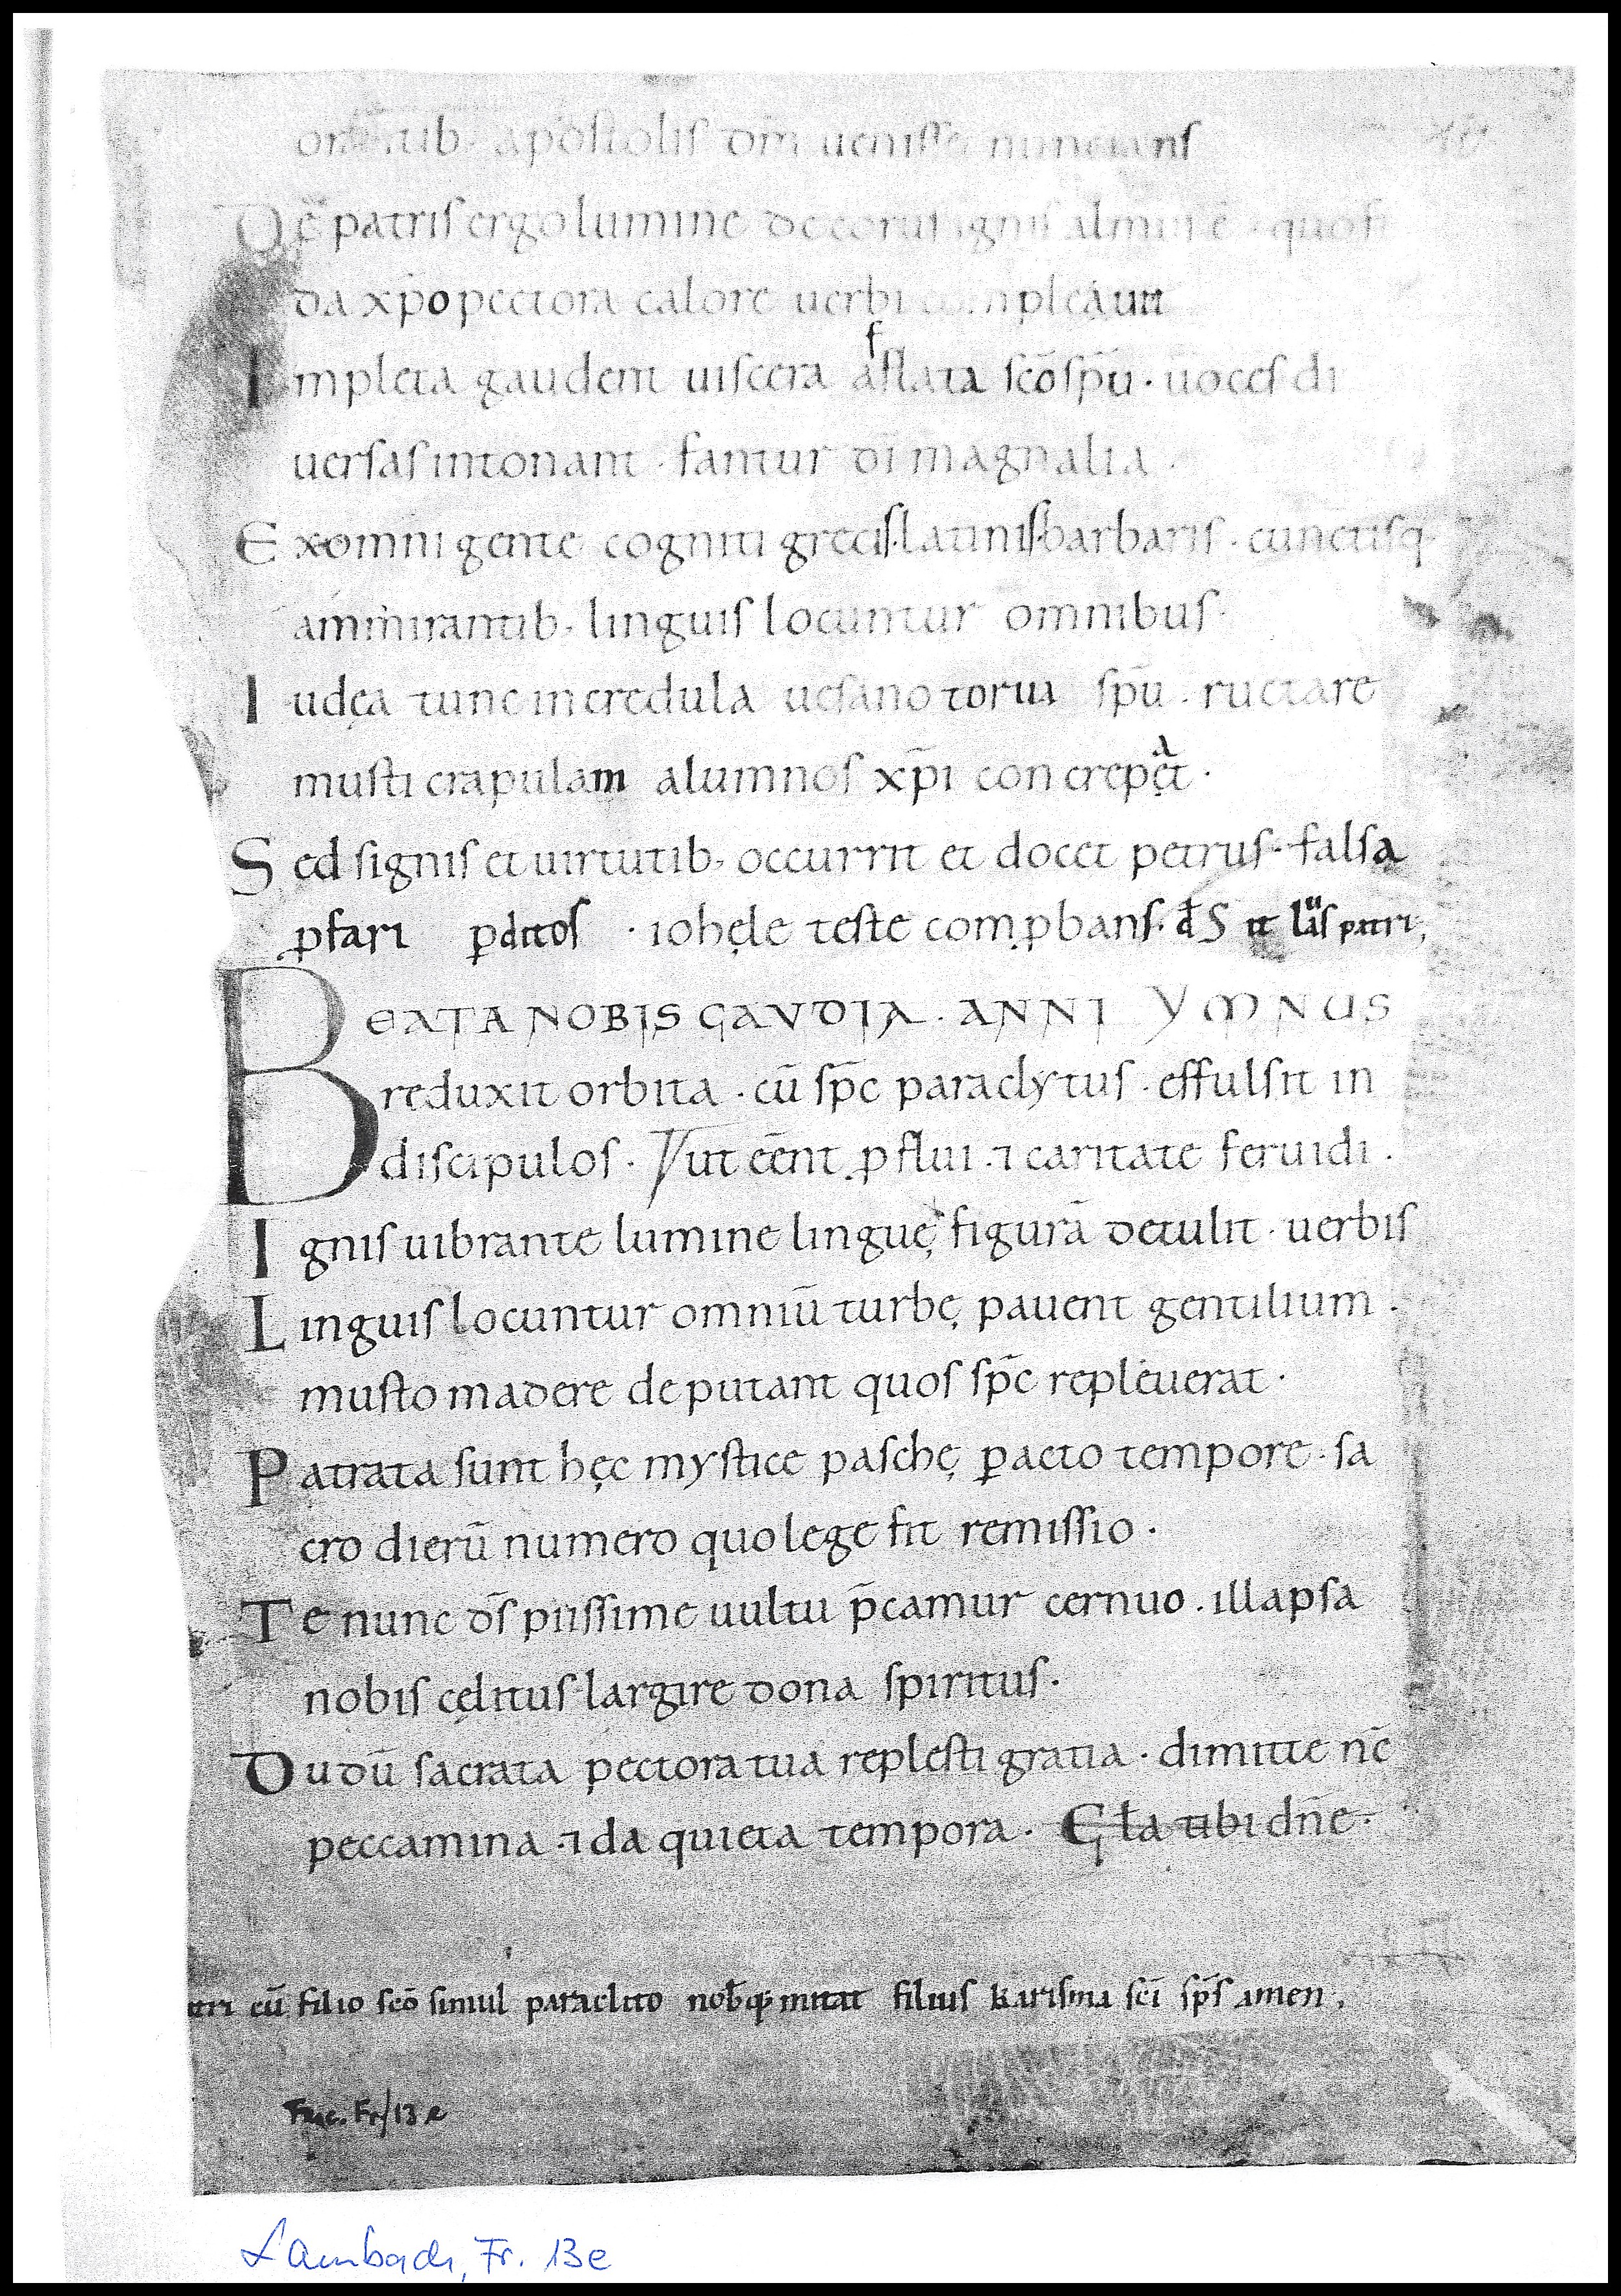 orantib; apostolis dm̄ uenisse nuncians
Dē patris ergo lumine decorus ignis almus ē · quo fi
da xp̄o pectora calore uerbi compleaut
Impleta gaudent uiscera aflata sc̄o sp̄u · uoces di
f
uersas intonant · fantur dī magnalia ·
Ex omni gente cogniti grecis · latinis · barbaris · cunctisq·
ammirantib; linguis locuntur omnibus ·
Iudęa tunc incredula uesano torua sp̄u · ructare
musti crapulam alumnos xp̄i concrepet ·
a
Sed signis et uirtutib; occurrit et docet petrus · falsa
ꝓfari ꝑditos · iohęle teste comꝓbans ·
BEATA NOBIS GAVDIA · ANNI YMNUS
reduxit orbita · cū sp̄c paraclytus · effulsit in
discipulos · Vut eēnt ꝓflui · ⁊ caritate feruidi ·
Ignis uibrante lumine linguę figurā detulit · uerbis
Linguis locuntur omniū turbę pauent gentilium ·
musto madere deputant quos sp̄c repleuerat ·
Patrata sunt hęc mystice paschę ꝑacto tempore · sa
cro dierū numero quo lege fit remissio ·
Te nunc d̄s piissime uultu p̄camur cernuo · illapsa
nobis cęlitus largire dona spiritus ·
Dudū sacrata pectora tua replesti gratia · dimitte nc̄
peccamina · ⁊ da quieta tempora · Gła tibi dn̄e ·
tri cū filio sc̄o simul paraclito nob̄q; mittat filius karisma sc̄i sp̄s amen ·
Fr/13 e
Lambach, Fr. 13e